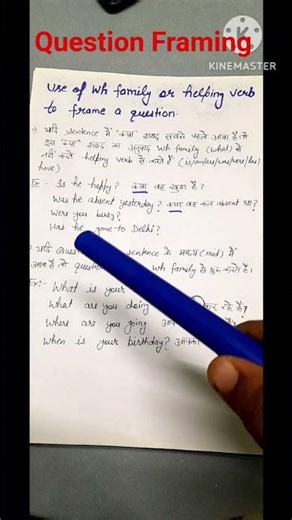 Question Framing
KINEMASTER
Use of Wh family or helping verb
to frame a question.
यदि sentence में 'क्या' शब्द सबसे पहले आता है तो
इस 'क्या' शब्द का अनुवाद Wh family (what) से
नहीं करते helping verb से करते हैं (is/am/are/was/were/has/
have)
Ex:- Is he happy? क्या वह खुश है?
Was he absent yesterday? क्या वह कल absent था?
Were you busy?
Has he gone to Delhi?
यदि sentence के मध्य (mid) में
आता है तो question Wh family से शुरू करते हैं।
Ex:- What is your
What are you doing रहे हैं?
Where are you going आप
When is your birthday? आपका